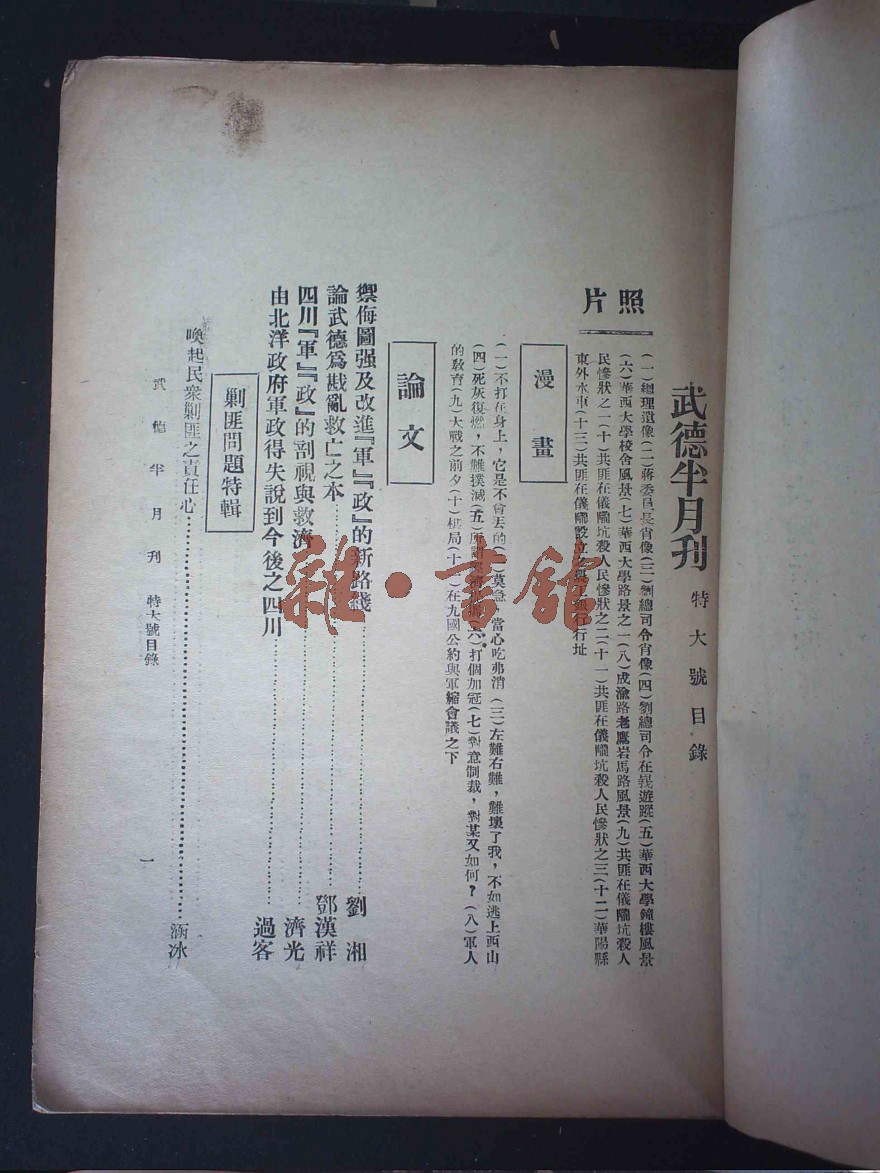 武德半月刊 特大號目錄
照片
(一)總理遺像(二)蔣委員長肖像(三)劉總司令肖像(四)劉總司令在峩遊蹤(五)華西大學鐘樓風景
(六)華西大學校舍風景(七)華西大學路景之一(八)成渝路老鷹岩馬路風景(九)共匪在儀隴坑殺人
民慘狀之一(十)共匪在儀隴坑殺人民慘狀之二(十一)共匪在儀隴坑殺人民慘狀之三(十二)華陽縣
東外水車(十三)共匪在儀隴設立之與工銀行行址
漫畫
(一)不打在身上,它是不會丟的(二)莫急 當心吃弗消 (三)左難右難,難壞了我,不如逃上西山
(四)死灰復燃,不難撲滅(五)所謂(六)打個加冠(七)對意制裁,對某又如何?(八)軍人
的教育(九)大戰之前夕(十)棋局(十一)在九國公約與軍縮會議之下
論文
禦侮圖强及改進『軍』『政』的新路綫 劉湘
論武德爲戡亂救亡之本 鄧漢祥
四川『軍』『政』的剖視與救濟 濟光
由北洋政府軍政得失說到今後之四川 過客
剿匪問題特輯
喚起民衆剿匪之責任心 涵冰
武德半月刊 特大號目錄 一
雜·書館